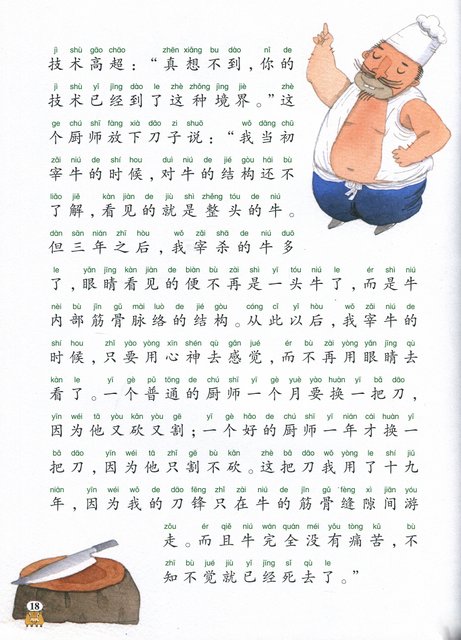 jì shù gāo chāo zhēn xiǎng bu dào nǐ de
技术高超：“真想不到，你的
jì shù yǐ jīng dào le zhè zhǒng jìng jiè zhè
技术已经到了这种境界。”这
ge chú shī fàng xià dāo zi shuō wǒ dāng chū
个厨师放下刀子说：“我当初
zǎi niú de shí hou duì niú de jié gòu hái bù
宰牛的时候，对牛的结构还不
liǎo jiě kàn jiàn de jiù shì zhěng tóu de niú
了解，看见的就是整头的牛。
dàn sān nián zhī hòu wǒ zǎi shā de niú duō
但三年之后，我宰杀的牛多
le yǎn jīng kàn jiàn de biàn bù zài shì yī tóu niú le ér shì niú
了，眼睛看见的便不再是一头牛了，而是牛
nèi bù jīn gǔ mài luò de jié gòu cóng cǐ yǐ hòu wǒ zǎi niú de
内部筋骨脉络的结构。从此以后，我宰牛的
shí hou zhǐ yào yòng xīn shén qù gǎn jué ér bù zài yòng yǎn jīng qù
时候，只要用心神去感觉，而不再用眼睛去
kàn le yī gè pǔ tōng de chú shī yī gè yuè yào huàn yī bǎ dāo
看了。一个普通的厨师一个月要换一把刀，
yīn wéi tā yòu kǎn yòu gē yī gè hǎo de chú shī yī nián cái huàn yī
因为他又砍又割；一个好的厨师一年才换一
bǎ dāo yīn wéi tā zhǐ gē bù kǎn zhè bǎ dāo wǒ yòng le shí jiǔ
把刀，因为他只割不砍。这把刀我用了十九
nián yīn wéi wǒ de dāo fēng zhǐ zài niú de jīn gǔ fèng xì jiān yóu
年，因为我的刀锋只在牛的筋骨缝隙间游
zǒu ér qiě niú wán quán méi yǒu tòng kǔ bù
走。而且牛完全没有痛苦，不
zhī bù jué jiù yǐ jīng sǐ qù le
知不觉就已经死去了。”
18